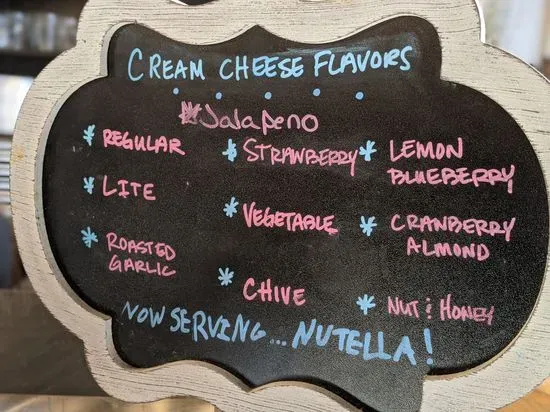 CREAM CHEESE FLAVORS
* Jalapeno
* REGULAR
* LITE
* ROASTED
GARLIC
* STRAWBERRY
* VEGETABLE
* CHIVE
* LEMON
BLUEBERRY
* CRANBERRY
ALMOND
* NUT & HONEY
NOW SERVING... NUTELLA!